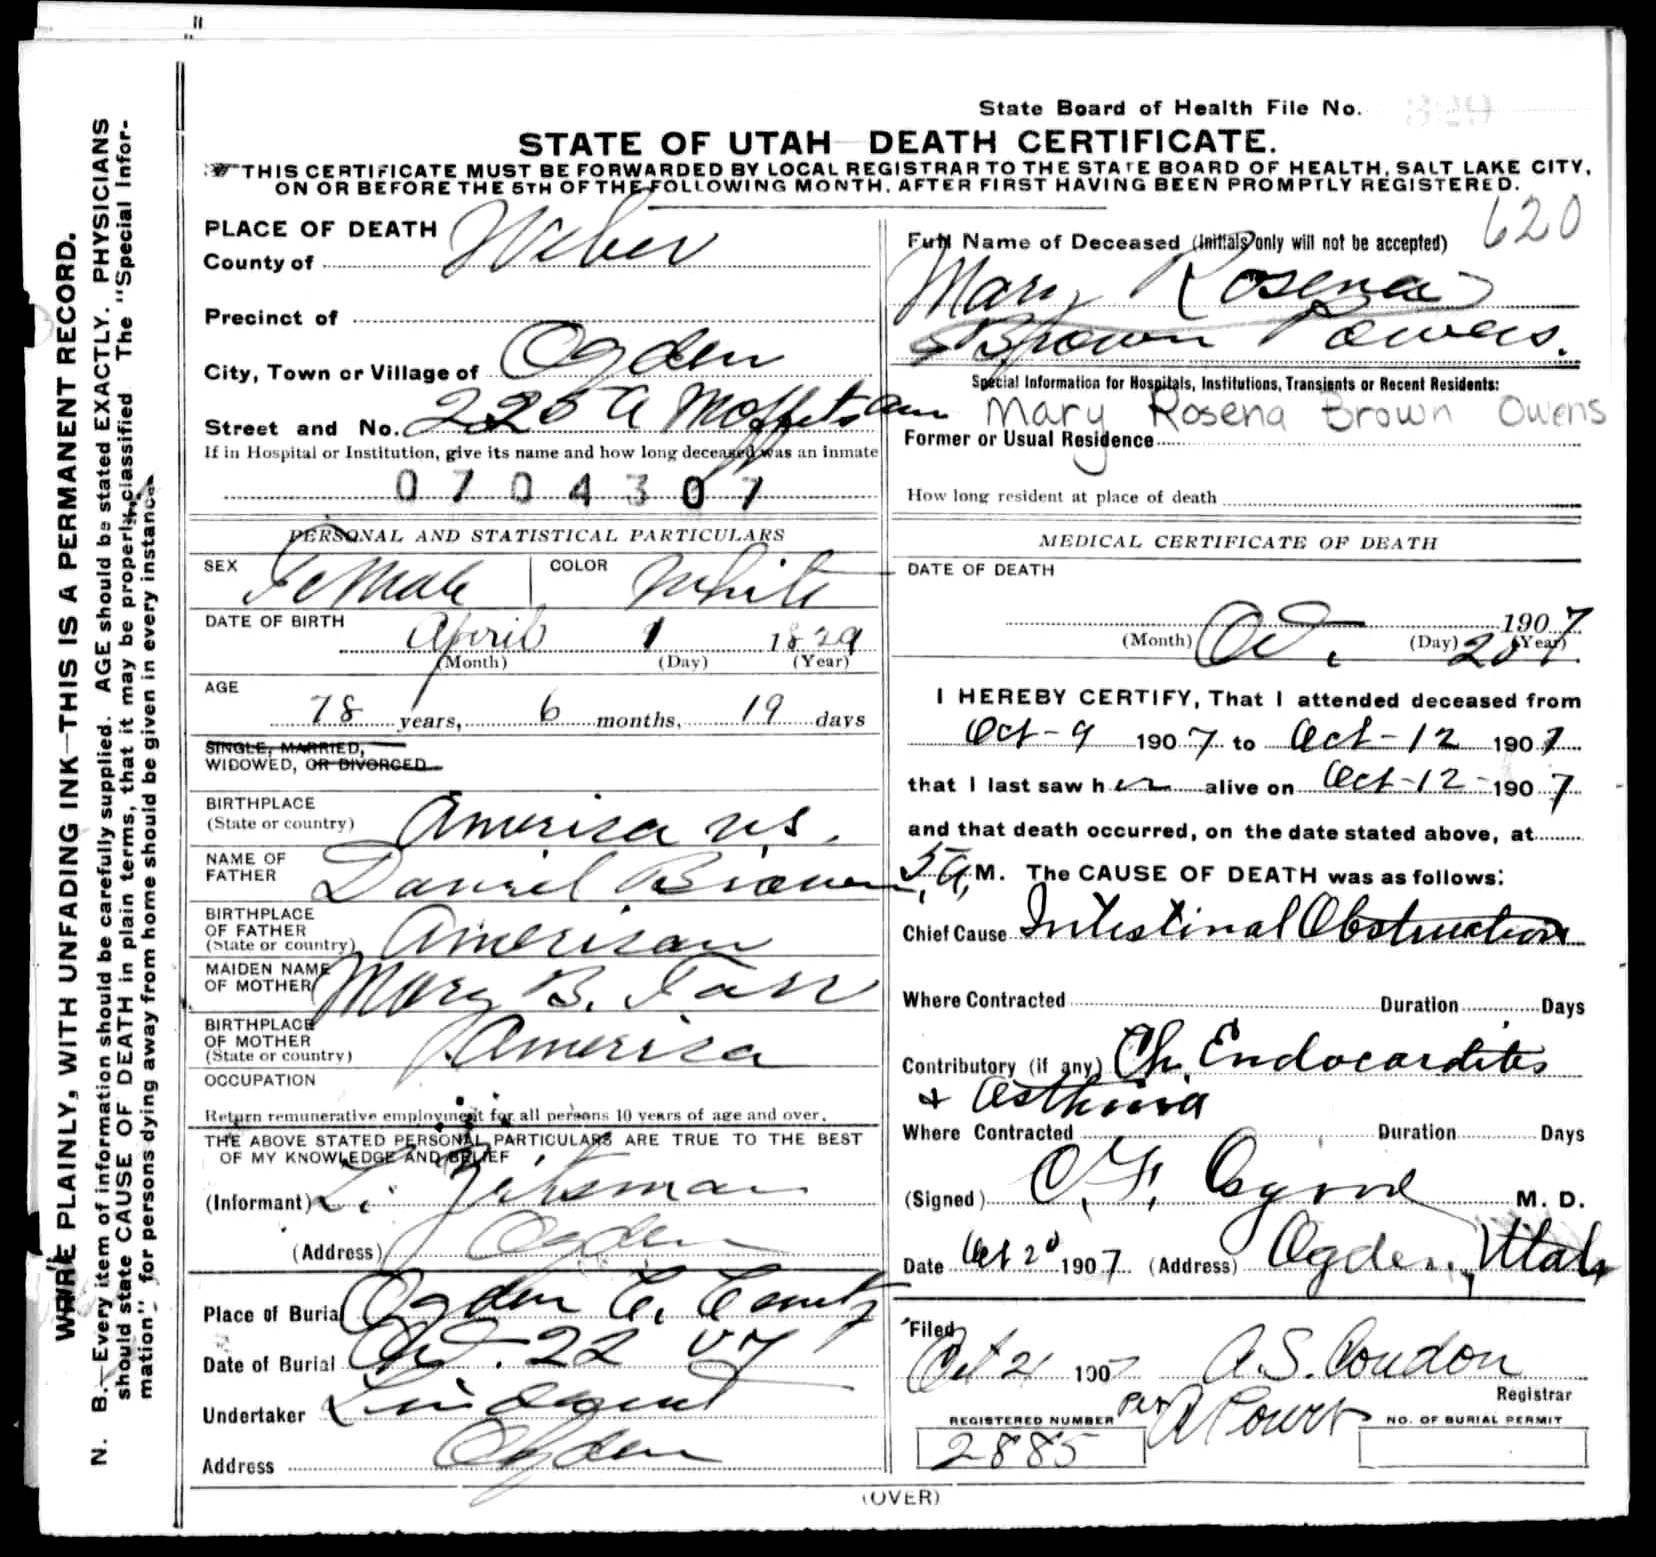 State Board of Health File No.
STATE OF UTAH DEATH CERTIFICATE.
THIS CERTIFICATE MUST BE FORWARDED BY LOCAL REGISTRAR TO THE STATE BOARD OF HEALTH, SALT LAKE CITY,
ON OR BEFORE THE 5TH OF THE FOLLOWING MONTH, AFTER FIRST HAVING BEEN PROMPTLY REGISTERED.
WRITE PLAINLY, WITH UNFADING INK—THIS IS A PERMANENT RECORD.
N. B.—Every item of information should be carefully supplied. AGE should be stated EXACTLY. PHYSICIANS
should state CAUSE OF DEATH in plain terms, that it may be properly classified. The "Special Infor-
mation" for persons dying away from home should be given in every instance.
PLACE OF DEATH
County of Weber
Precinct of
City, Town or Village of Ogden
Street and No. 225 A Moffets Ave
If in Hospital or Institution, give its name and how long deceased was an inmate
0704307
PERSONAL AND STATISTICAL PARTICULARS
SEX Female COLOR White
DATE OF BIRTH April 1 1829
(Month) (Day) (Year)
AGE
78 years, 6 months, 19 days
SINGLE, MARRIED,
WIDOWED, OR DIVORCED
BIRTHPLACE
(State or country) America U.S.
NAME OF
FATHER Daniel Brown
BIRTHPLACE
OF FATHER
(State or country) American
MAIDEN NAME
OF MOTHER Mary B.
BIRTHPLACE
OF MOTHER
(State or country) America
OCCUPATION
Return remunerative employment for all persons 10 years of age and over.
THE ABOVE STATED PERSONAL PARTICULARS ARE TRUE TO THE BEST
OF MY KNOWLEDGE AND BELIEF
(Informant)
(Address) Ogden
Place of Burial Ogden C. Cemty
Date of Burial Oct. 22 07
Undertaker Lindquist
Address Ogden
620
Full Name of Deceased (Initials only will not be accepted)
Mary Rosena
Brown Owens.
Special Information for Hospitals, Institutions, Transients or Recent Residents:
Mary Rosena Brown Owens
Former or Usual Residence
How long resident at place of death
MEDICAL CERTIFICATE OF DEATH
DATE OF DEATH
1907
(Month) Oct. (Day) 20 (Year) 7.
I HEREBY CERTIFY, That I attended deceased from
Oct-9 1907 to Oct-12 1907
that I last saw her alive on Oct-12-1907
and that death occurred, on the date stated above, at
5 A. M. The CAUSE OF DEATH was as follows:
Chief Cause Intestinal Obstruction
Where Contracted Duration Days
Contributory (if any) Ch. Endocarditis
+ Asthma
Where Contracted Duration Days
(Signed) M. D.
Date Oct 20 1907 (Address) Ogden, Utah
Filed
Oct 21 1907 A. S. Condon
Registrar
Per
REGISTERED NUMBER NO. OF BURIAL PERMIT
2885
(OVER)